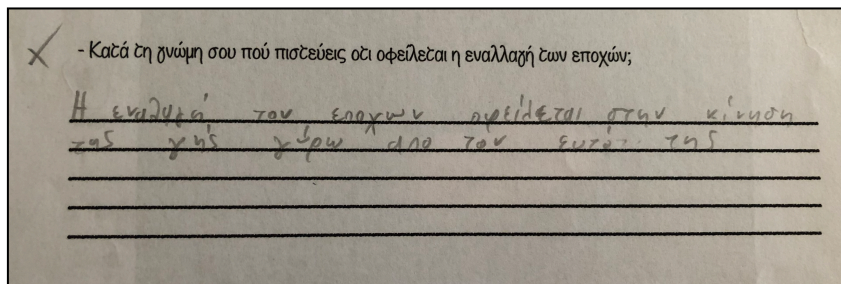 - Κατά τη γνώμη σου πού πιστεύεις οτι οφείλεται η εναλλαγή των εποχών;
Η εναλαγή τον εποχων οφείλεται στην κίνηση
της γής γύρω απο τον ευτό της